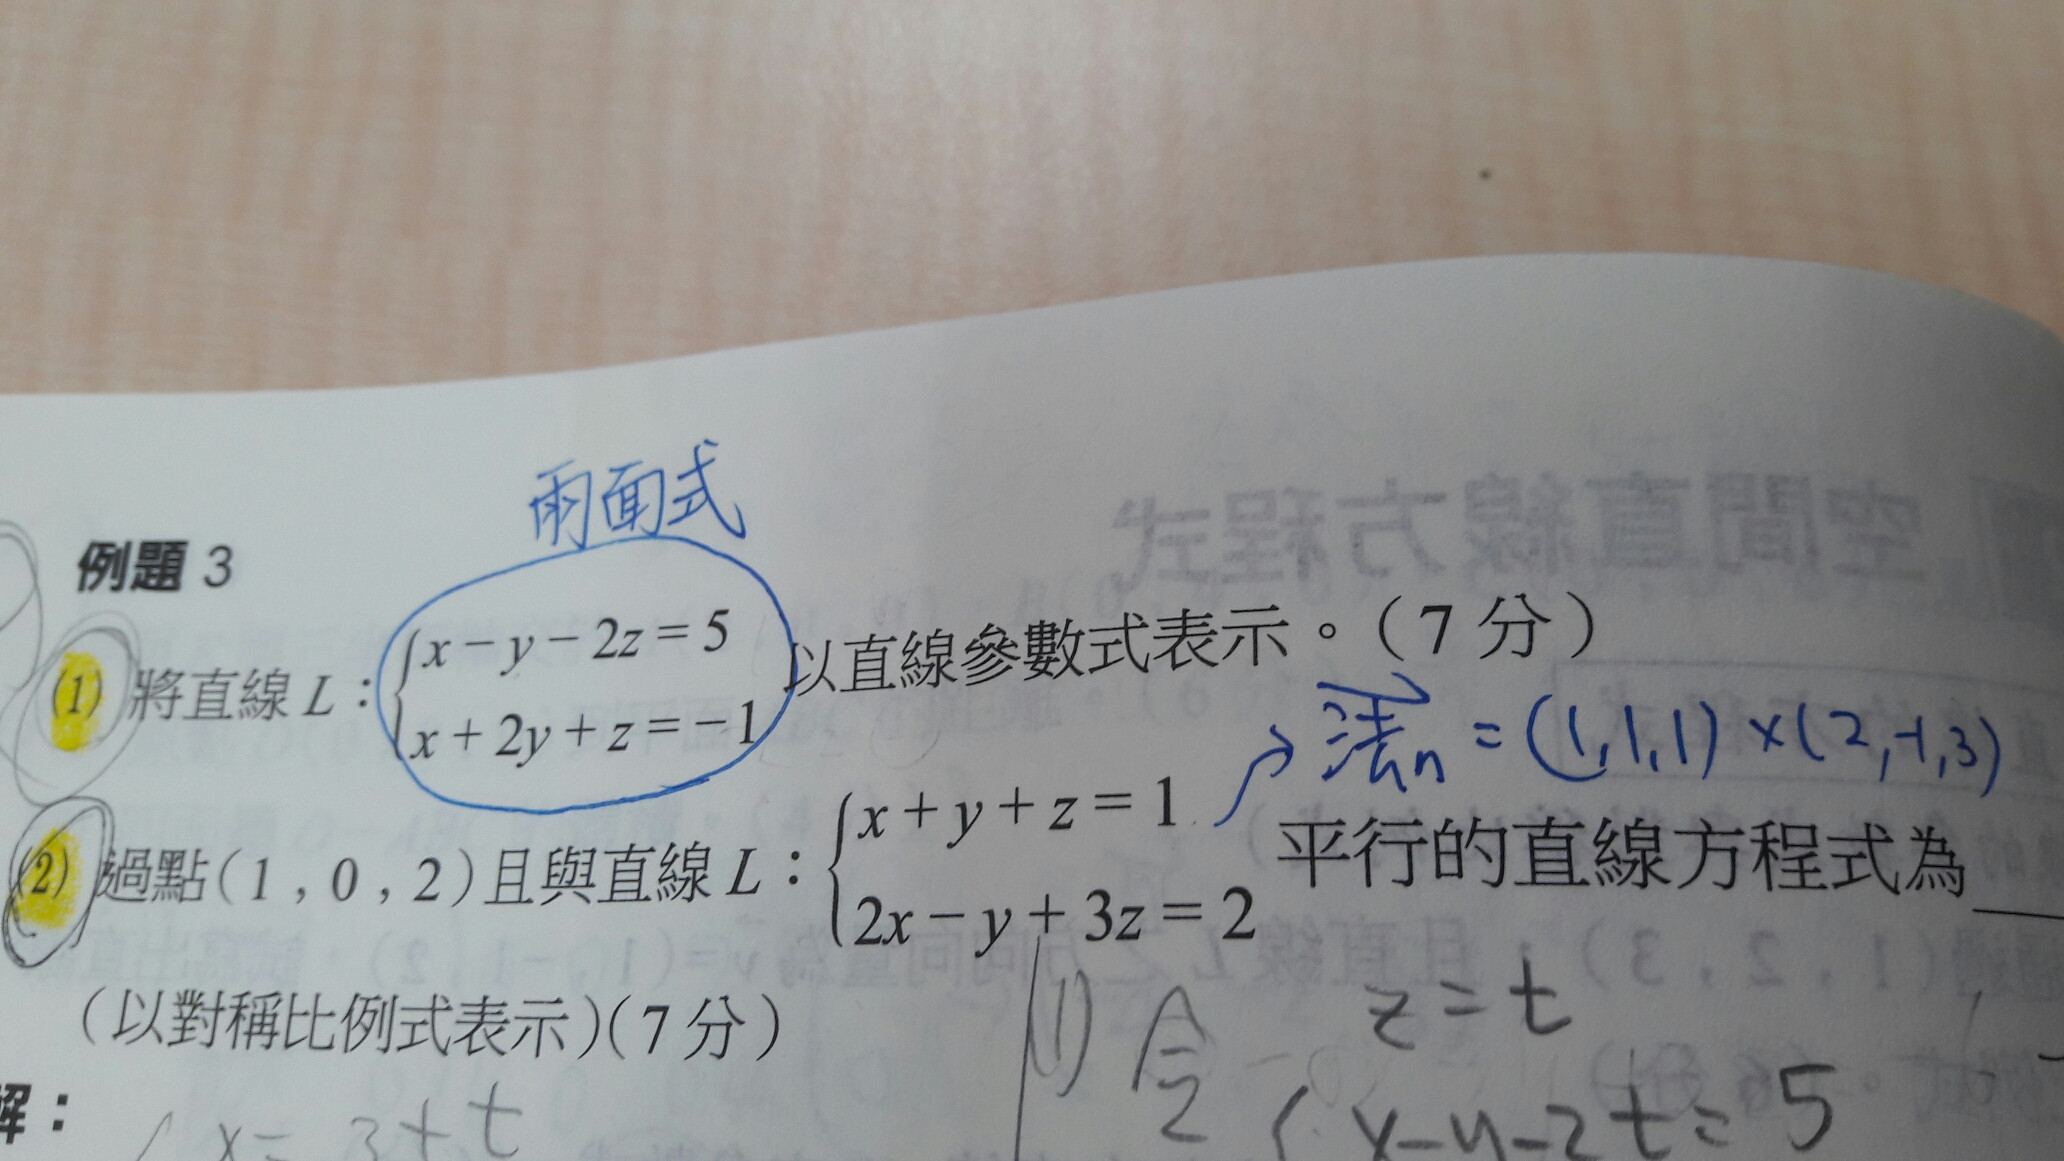 兩面式
例題 3
(1) 將直線 L：{x－y－2z＝5 以直線參數式表示。（7 分）
x＋2y＋z＝－1
法n = (1,1,1)×(2,-1,3)
(2) 過點(1，0，2)且與直線 L：{x＋y＋z＝1 平行的直線方程式為
2x－y＋3z＝2
（以對稱比例式表示）(7 分)
(1) 令 z=t
解：
x=3+t
x-y-2t=5
空間直線方程式